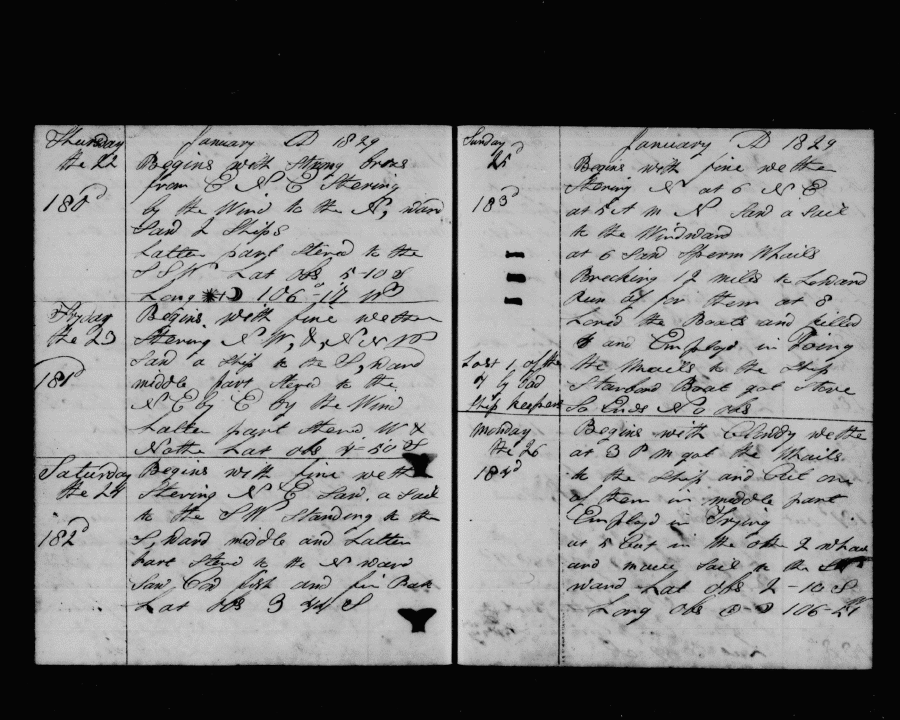 January AD 1829
Thursday
the 22
180d
Begins with Strong brezs
from E N E Stering
by the Wind to the N, ward
Saw 2 Ships
Latter part Sterd to the
S S W Lat obs 5-10 S
Long 106-17 W
Fryday
the 23
181d
Begins with fine wether
Stering N W, & N N W
Saw a Ship to the S, ward
middle part Sterd to the
N E by E by the Wind
Latter part Sterd W &
Nothe Lat obs 4-50 S
Saturday
the 24
182d
Begins with fine wether
Stering N E Saw a Sail
to the S W Standing to the
S, ward middle and Latter
part Sterd to the N ward
Saw Cow fish and fin Back
Lat obs 3 44 S
January AD 1829
Sunday
25d
183d
Begins with fine wether
Stering N at 6 N E
at 5 A m N Saw a Sail
to the Windward
at 6 Saw Sperm Whails
Breching 12 miles to Leward
Run of for them at 8
Lored the Boats and killed
and Employd in Toing
the Whails to the Ship
Starbord Boat got Stove
So Ends No obs
Last 1 of the
by bad
Ship keepers
Monday
the 26
184d
Begins with Cloudy wethe
at 3 P m got the Whails
to the Ship and Cut one
of them in middle part
Employd in Trying
at 5 Cut in the other 2 whails
and made Sail to the
ward Lat obs 2-10 S
Long obs 106-